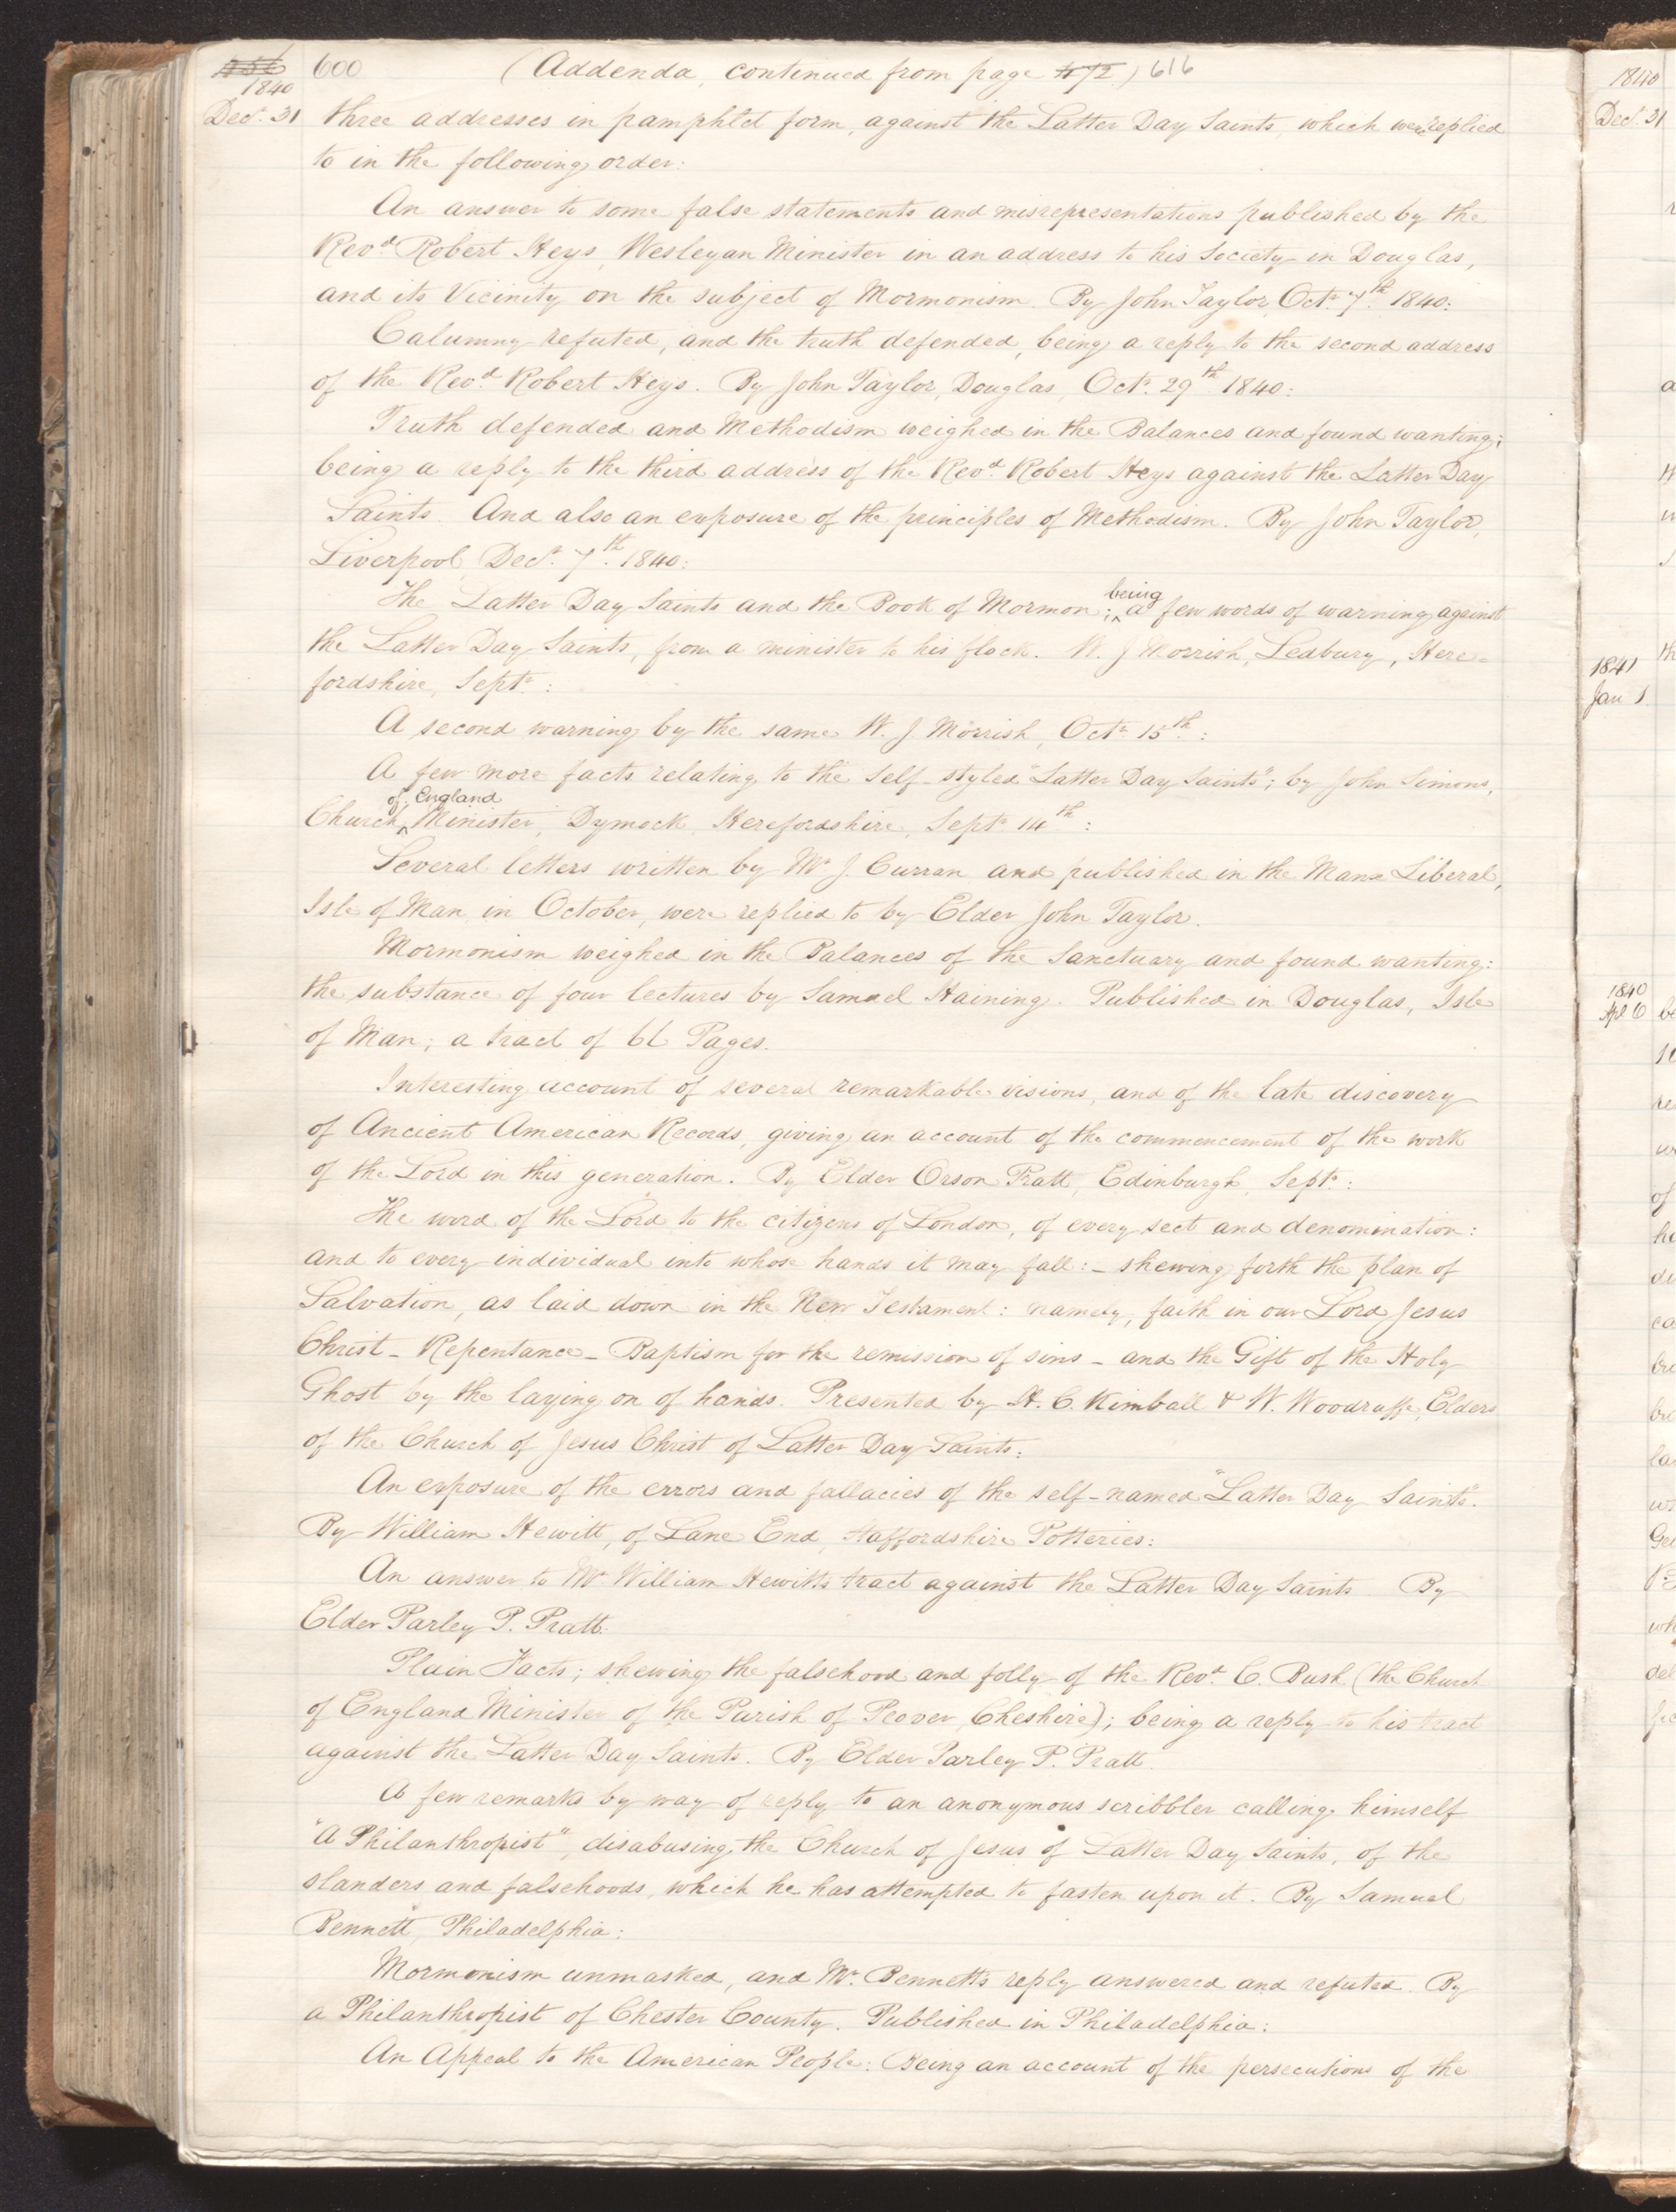 600 (Addenda, continued from page 472) 616
1840
Decr. 31 three addresses in pamphlet form, against the Latter Day Saints, which were replied
to in the following order:
An answer to some false statements and misrepresentations published by the
Revd. Robert Heys, Wesleyan Minister in an address to his Society in Douglas,
and its Vicinity on the subject of Mormonism. By John Taylor, Octr. 7th. 1840:
Calumny refuted, and the truth defended, being a reply to the second address
of the Revd. Robert Heys. By John Taylor, Douglas, Octr. 29th. 1840:
Truth defended and Methodism weighed in the Balances and found wanting;
being a reply to the third address of the Revd. Robert Heys against the Latter Day
Saints. And also an exposure of the principles of Methodism. By John Taylor,
Liverpool, Decr. 7th. 1840:
The Latter Day Saints and the Book of Mormon; being a few words of warning against
the Latter Day Saints, from a minister to his flock. W. J Morrish, Ledbury, Here-
fordshire, Septr.:
A second warning by the same W. J. Morrish, Octr. 15th.:
A few more facts relating to the self-styled "Latter Day Saints"; by John Simons,
Church of England Minister, Dymock, Herefordshire, Septr. 14th.:
Several letters written by Mr. J. Curran and published in the Manx Liberal,
Isle of Man, in October, were replied to by Elder John Taylor.
Mormonism weighed in the Balances of the Sanctuary and found wanting:
the substance of four lectures by Samuel Haining. Published in Douglas, Isle
of Man; a tract of 66 Pages.
Interesting account of several remarkable visions, and of the late discovery
of Ancient American Records, giving an account of the commencement of the work
of the Lord in this generation. By Elder Orson Pratt, Edinburgh, Septr.:
The word of the Lord to the citizens of London, of every sect and denomination:
and to every individual into whose hands it may fall:- shewing forth the plan of
Salvation, as laid down in the New Testament: namely, faith in our Lord Jesus
Christ - Repentance - Baptism for the remission of sins - and the Gift of the Holy
Ghost by the laying on of hands. Presented by H. C. Kimball & W. Woodruffe, Elders
of the Church of Jesus Christ of Latter Day Saints:
An exposure of the errors and fallacies of the self-named "Latter Day Saints".
By William Hewitt, of Lane End, Staffordshire Potteries:
An answer to Mr. William Hewitts tract against the Latter Day Saints. By
Elder Parley P. Pratt:
Plain Facts; shewing the falsehood and folly of the Revd. C. Bush (the Church
of England Minister of the Parish of Peover, Cheshire); being a reply to his tract
against the Latter Day Saints. By Elder Parley P. Pratt.
A few remarks by way of reply to an anonymous scribbler calling himself
"A Philanthropist", disabusing the Church of Jesus of Latter Day Saints, of the
slanders and falsehoods, which he has attempted to fasten upon it. By Samuel
Bennett, Philadelphia:
Mormonism unmasked, and Mr. Bennett's reply answered and refuted. By
a Philanthropist of Chester County. Published in Philadelphia:
An Appeal to the American People: Being an account of the persecutions of the
1840
Decr. 31
1841
Jan 1
1840
Apl 6